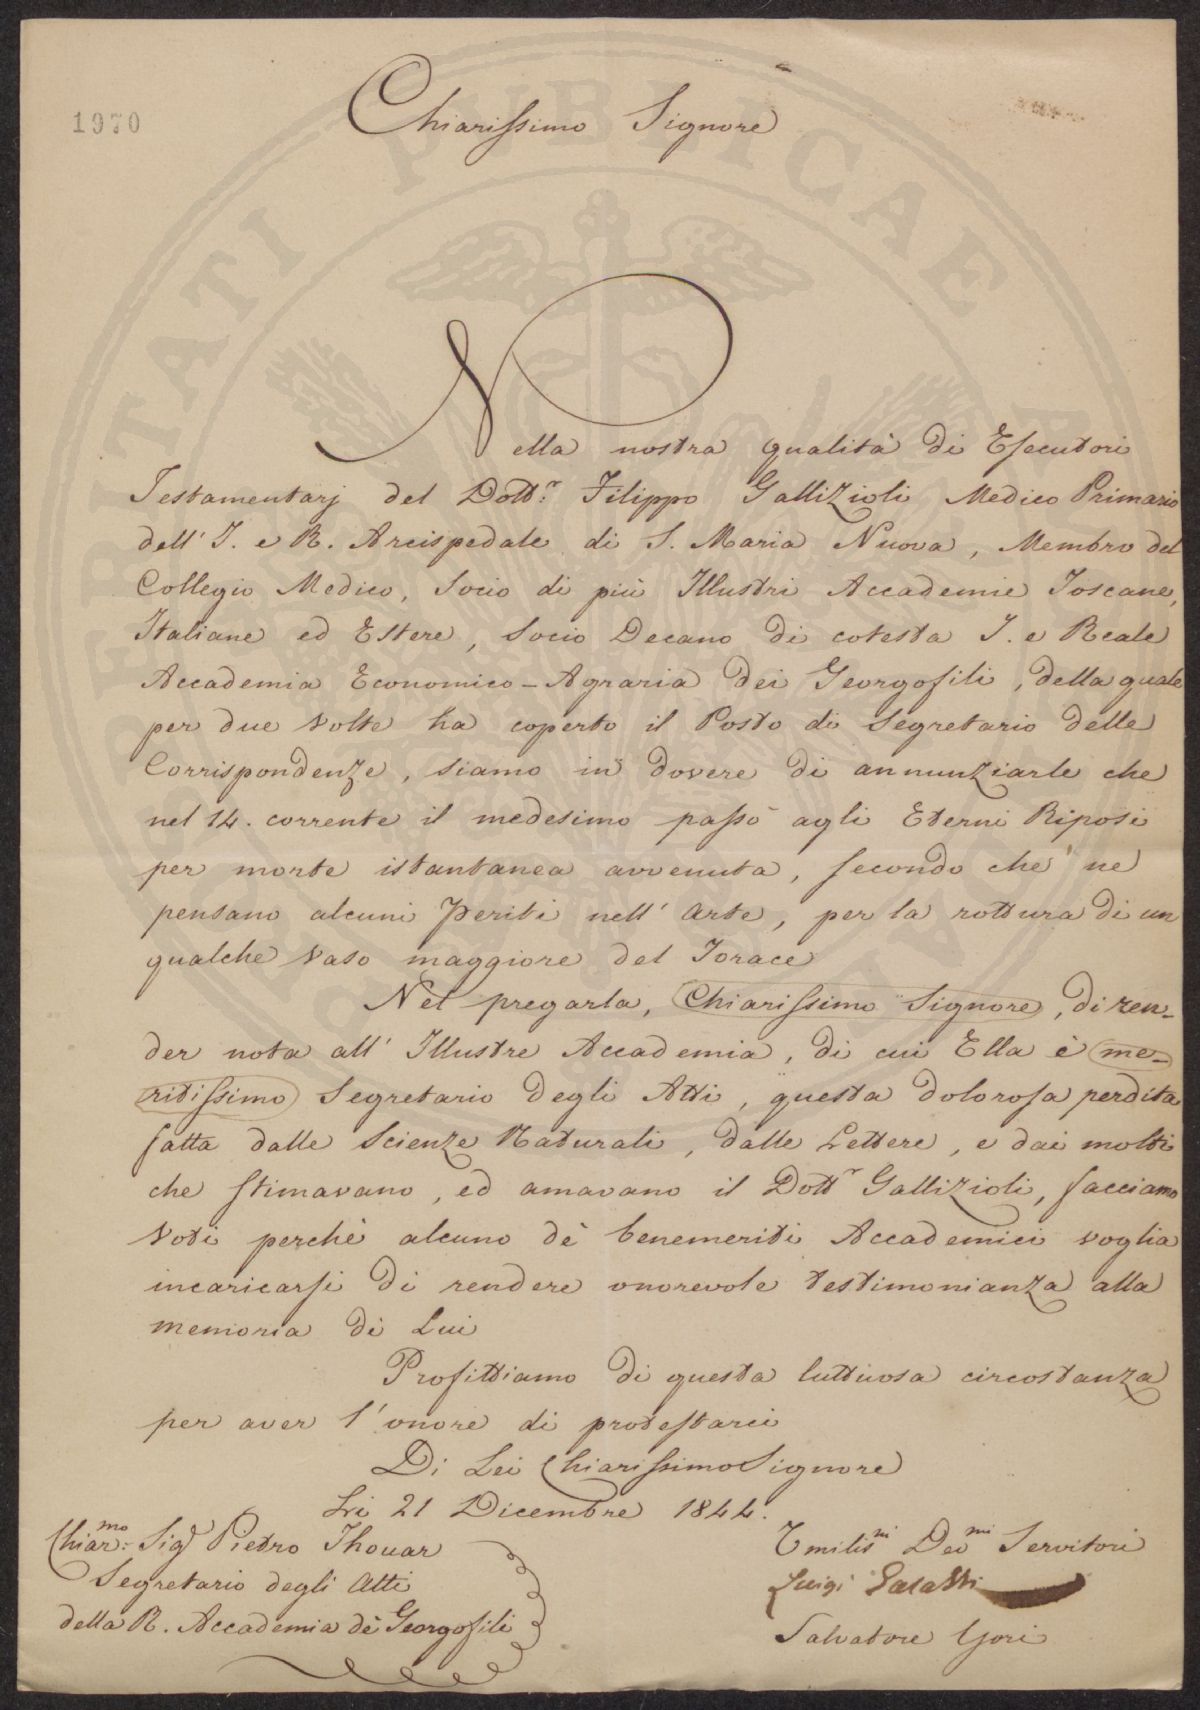 1970
Chiarissimo Signore
Nella nostra qualità di Esecutori
Testamentarj del Dott.r Filippo Gallizioli Medico Primario
dell' I. e R. Arcispedale di S. Maria Nuova, Membro del
Collegio Medico, Socio di più Illustri Accademie Toscane,
Italiane ed Estere, Socio Decano di cotesta I. e Reale
Accademia Economico-Agraria dei Georgofili, della quale
per due volte ha coperto il Posto di Segretario delle
Corrispondenze, siamo in dovere di annunziarle che
nel 14. corrente il medesimo passò agli Eterni Riposi
per morte istantanea avvenuta, secondo che ne
pensano alcuni Periti nell' arte, per la rottura di un
qualche vaso maggiore del Torace
Nel pregarla, Chiarissimo Signore, di ren-
der nota all' Illustre Accademia, di cui Ella è me-
ritissimo Segretario degli Atti, questa dolorosa perdita
fatta dalle Scienze Naturali, dalle Lettere, e dai molti
che stimavano, ed amavano il Dott.r Gallizioli, facciamo
voti perchè alcuno dè benemeriti Accademici voglia
incaricarsi di rendere onorevole testimonianza alla
memoria di Lui
Profittiamo di questa luttuosa circostanza
per aver l'onore di protestarci
Di Lei Chiarissimo Signore
Li 21 Dicembre 1844.
Chiar.mo Sig.r Pietro Thouar
Segretario degli Atti
della R. Accademia dè Georgofili
Umilis.mi Dev.mi Servitori
Luigi
Salvatore Gori
PUBLICAE